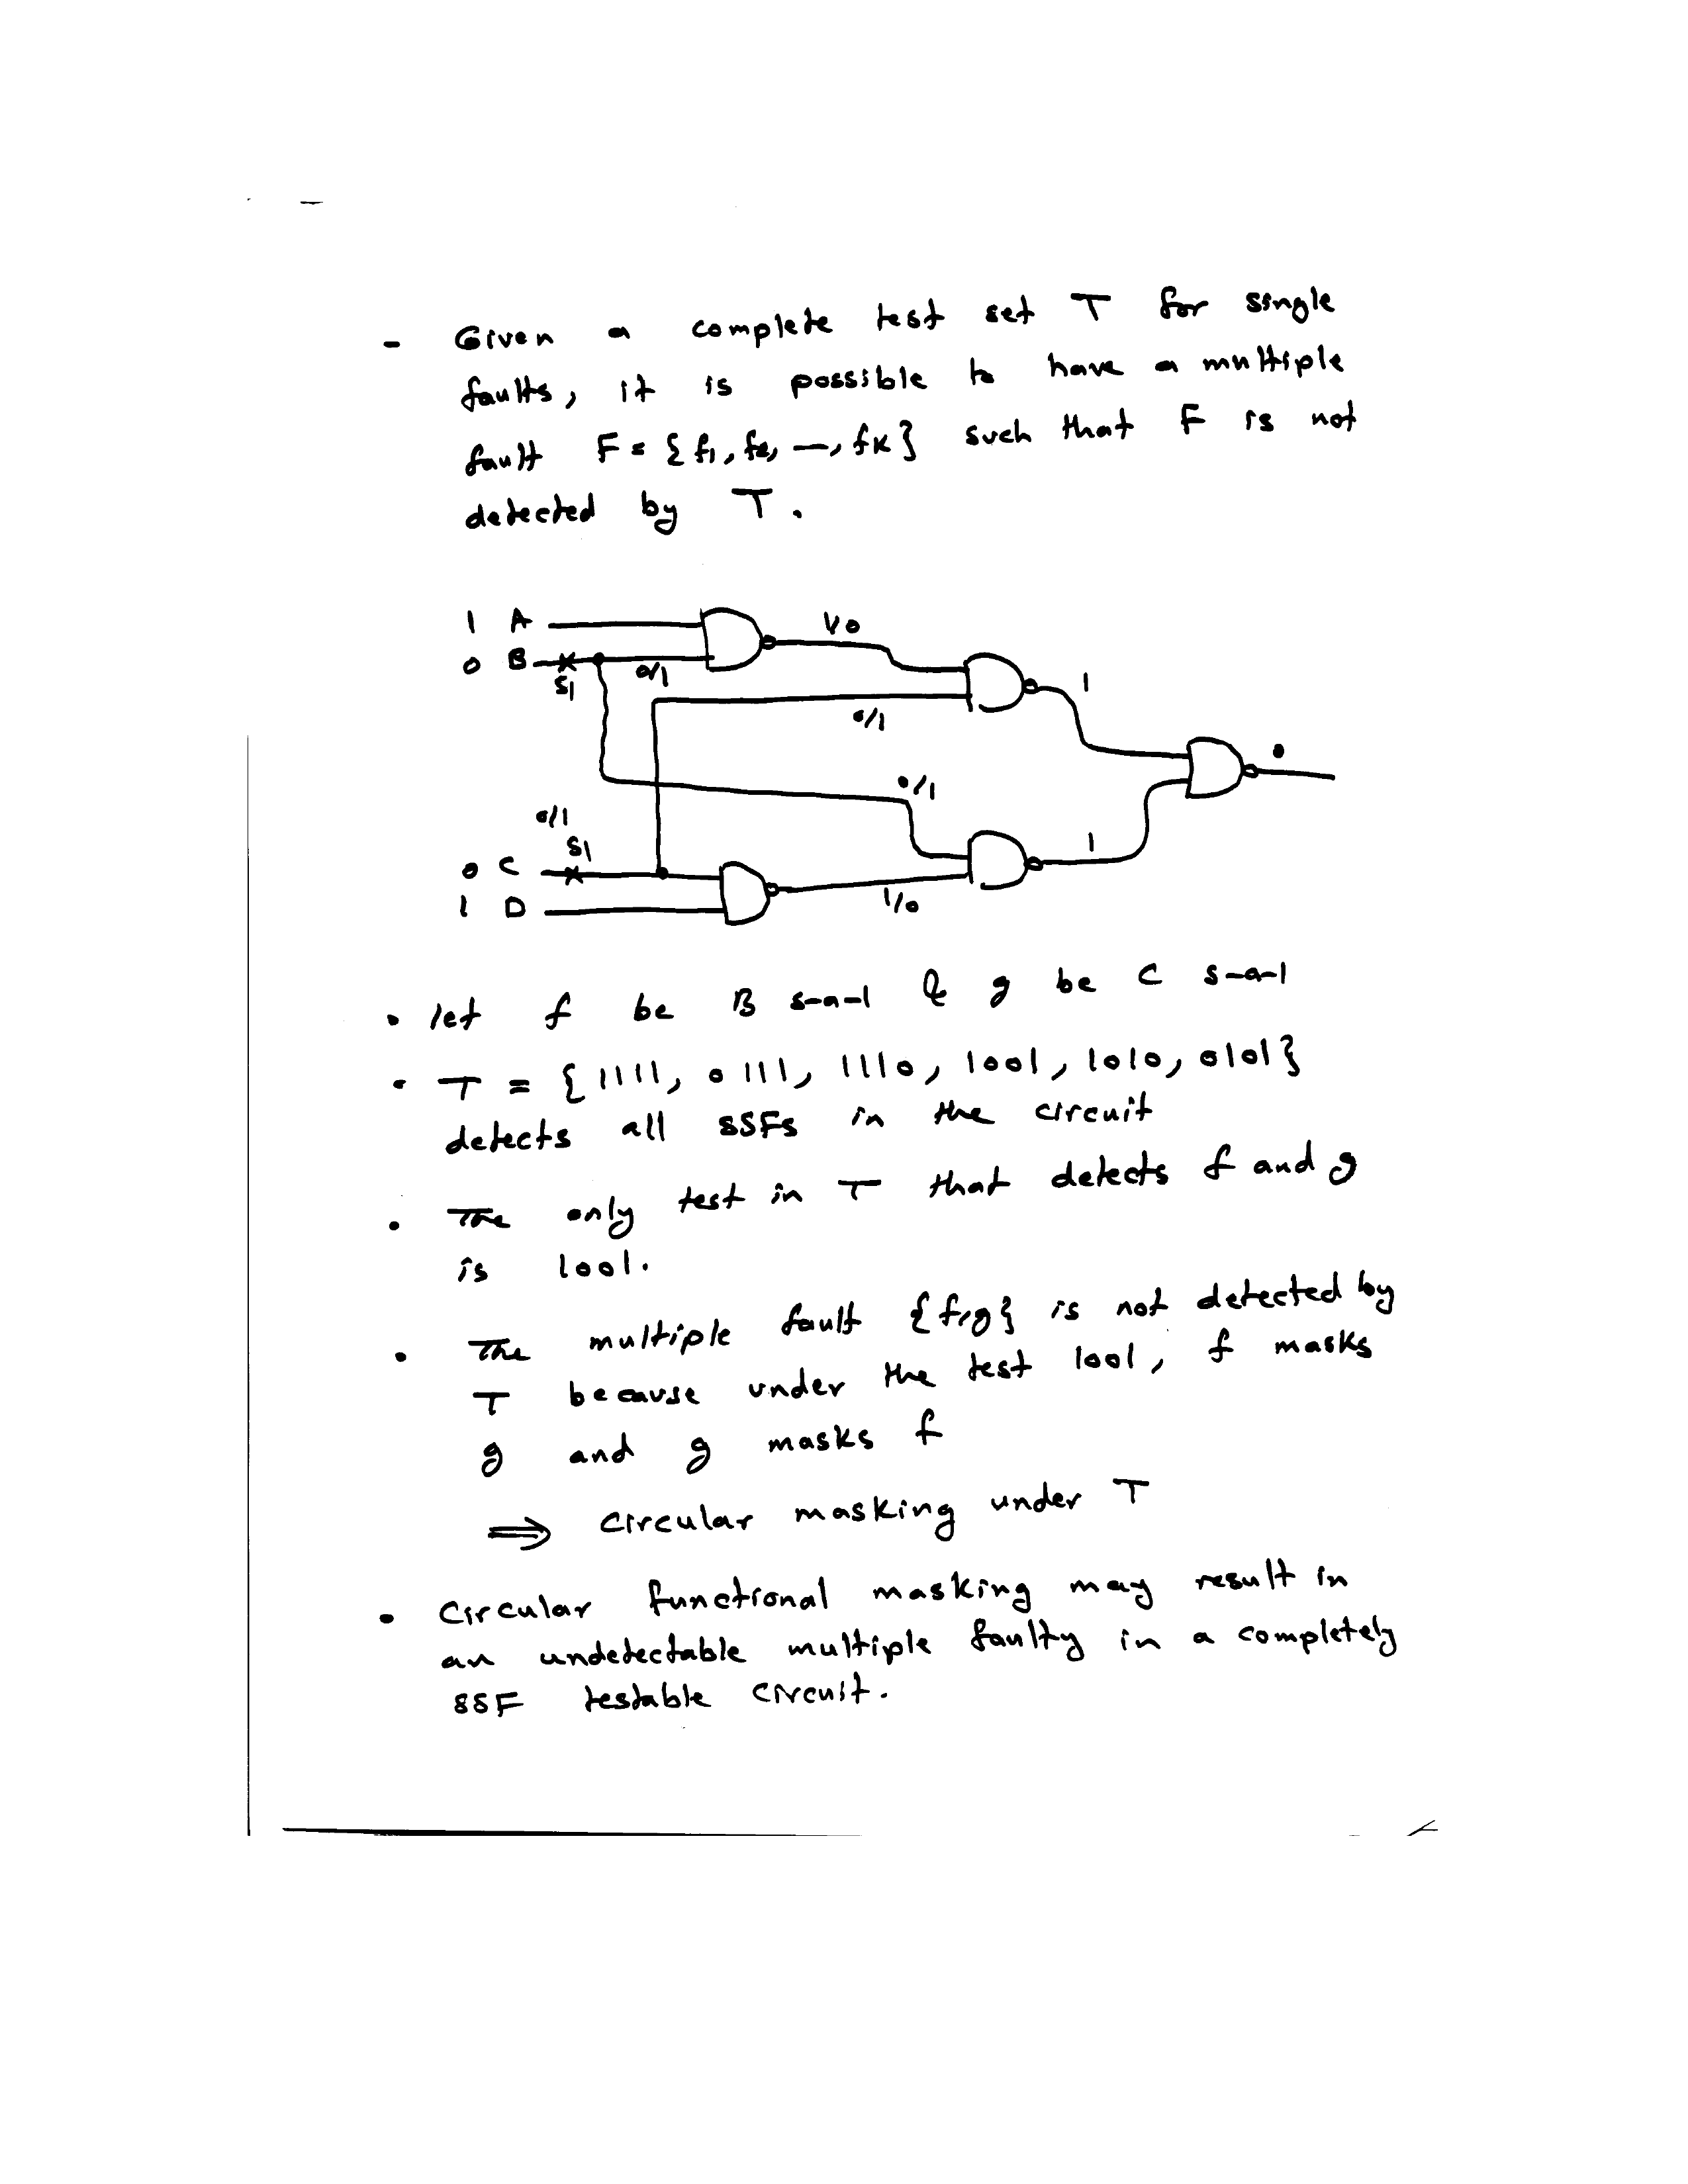 - Given a complete test set T for single
faults, it is possible to have a multiple
fault F = {f1, f2, —, fK} such that F is not
detected by T.
1 A
1/0
0 B
S1
0/1
1
0/1
0
0/1
0/1
S1
1
0 C
1/0
1 D
• let f be B s-a-1 & g be C s-a-1
• T = {1111, 0111, 1110, 1001, 1010, 0101}
detects all SSFs in the circuit
• The only test in T that detects f and g
is 1001.
• The multiple fault {f,g} is not detected by
T because under the test 1001, f masks
g and g masks f
⇒ circular masking under T
• Circular functional masking may result in
an undetectable multiple faulty in a completely
SSF testable circuit.